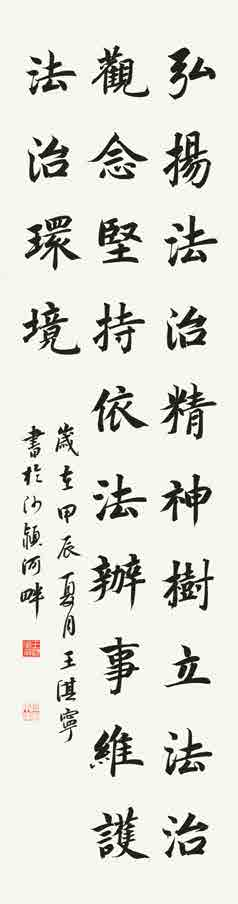 弘揚法治精神樹立法治
觀念堅持依法辦事維護
法治環境
歲在甲辰夏月王淇寧
書於沙潁河畔